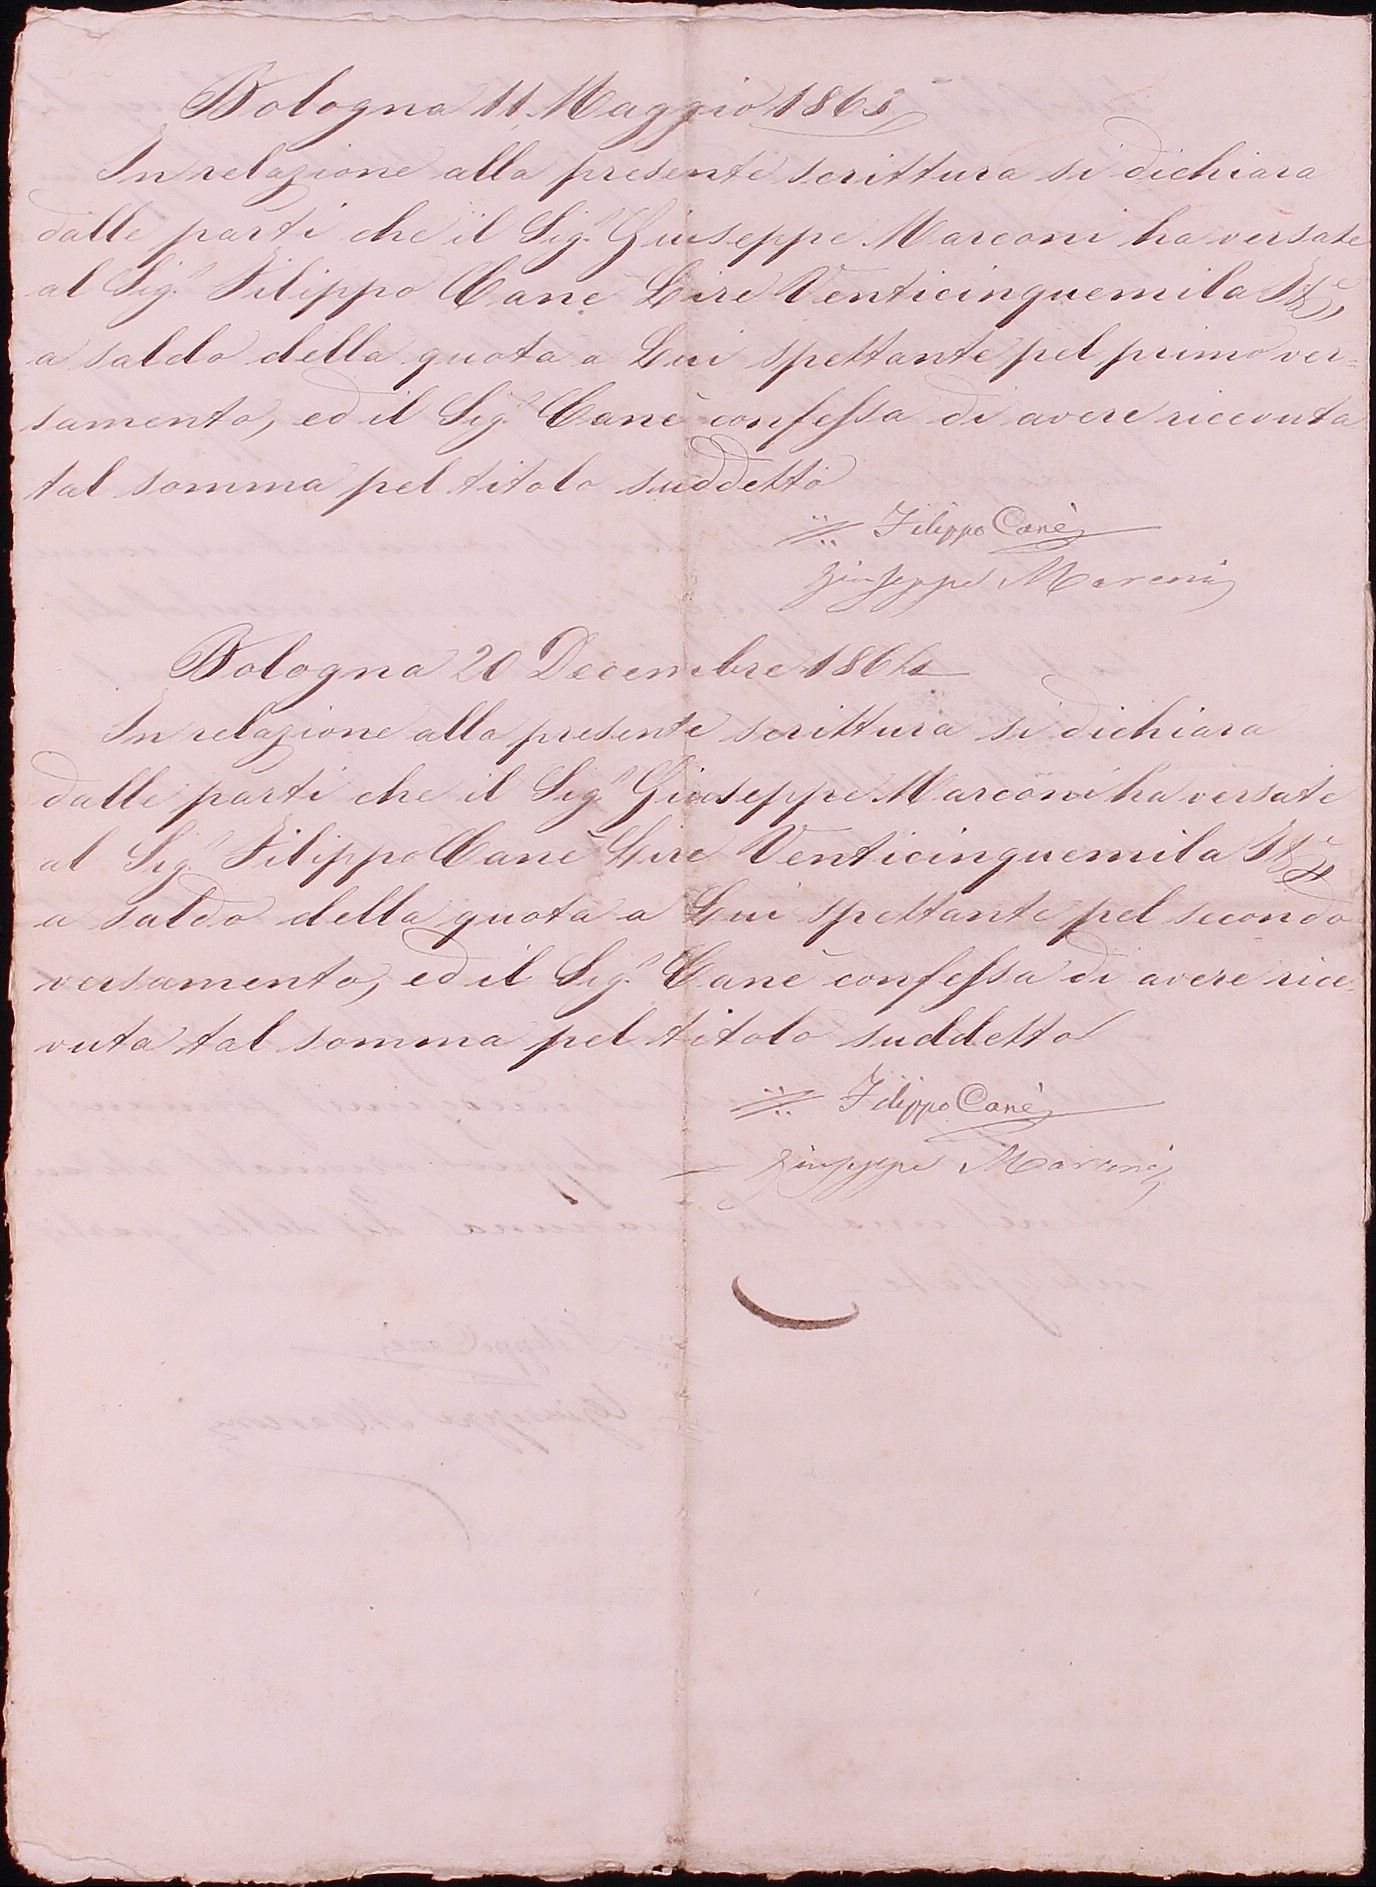 Bologna 11 Maggio 1863
In relazione alla presente scrittura si dichiara
dalle parti che il Sig.r Giuseppe Marconi ha versate
al Sig.r Filippo Canè Lire Venticinquemila It.e
a saldo della quota a Lui spettante pel primo ver-
samento, ed il Sig.r Canè confessa di avere ricevuta
tal somma pel titolo suddetto
Filippo Canè
Giuseppe Marconi
Bologna 20 Decembre 1864
In relazione alla presente scrittura si dichiara
dalle parti che il Sig.r Giuseppe Marconi ha versate
al Sig.r Filippo Canè Lire Venticinquemila It.e
a saldo della quota a Lui spettante pel secondo
versamento, ed il Sig.r Canè confessa di avere rice-
vuta tal somma pel titolo suddetto
Filippo Canè
Giuseppe Marconi